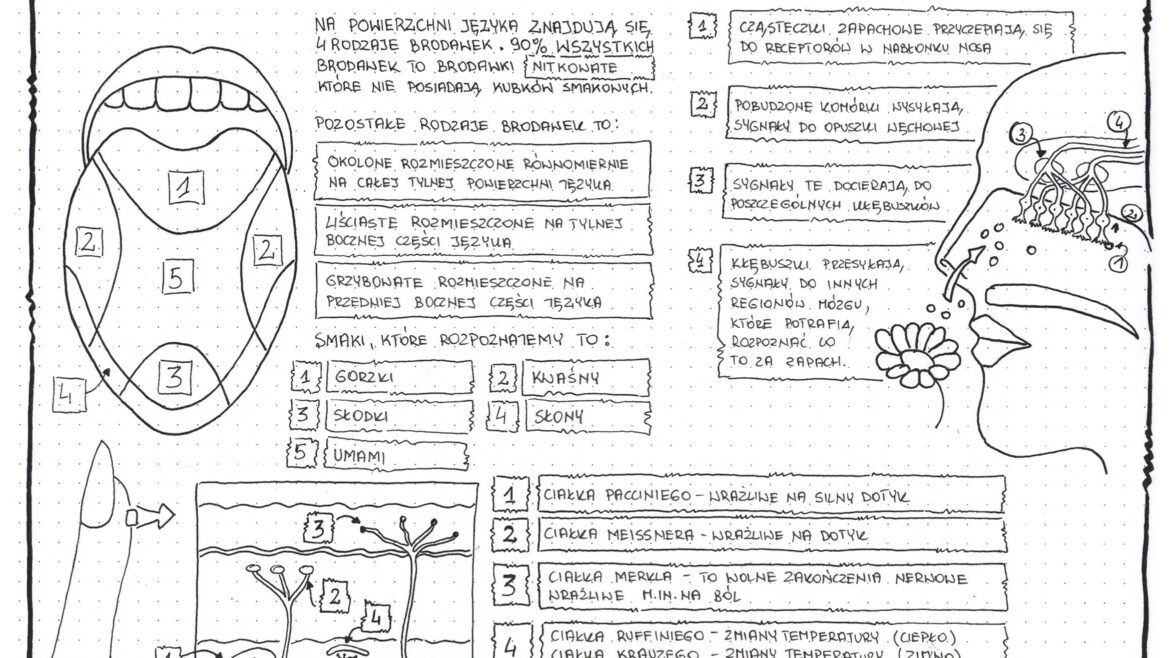 NA POWIERZCHNI JĘZYKA ZNAJDUJĄ SIĘ
4 RODZAJE BRODAWEK. 90% WSZYSTKICH
BRODAWEK TO BRODAWKI NITKOWATE
KTÓRE NIE POSIADAJĄ KUBKÓW SMAKOWYCH.
POZOSTAŁE RODZAJE BRODAWEK TO:
OKOLONE ROZMIESZCZONE RÓWNOMIERNIE
NA CAŁEJ TYLNEJ POWIERZCHNI JĘZYKA
LIŚCIASTE ROZMIESZCZONE NA TYLNEJ
BOCZNEJ CZĘŚCI JĘZYKA
GRZYBOWATE ROZMIESZCZONE NA
PRZEDNIEJ BOCZNEJ CZĘŚCI JĘZYKA
SMAKI, KTÓRE ROZPOZNAJEMY TO:
1 GORZKI
2 KWAŚNY
3 SŁODKI
4 SŁONY
5 UMAMI
1
2
2
5
3
4
1 CZĄSTECZKI ZAPACHOWE PRZYCZEPIAJĄ SIĘ
DO RECEPTORÓW W NABŁONKU NOSA
2 POBUDZONE KOMÓRKI WYSYŁAJĄ
SYGNAŁY DO OPUSZKI WĘCHOWEJ
3 SYGNAŁY TE DOCIERAJĄ DO
POSZCZEGÓLNYCH KŁĘBUSZKÓW
4 KŁĘBUSZKI PRZESYŁAJĄ
SYGNAŁY DO INNYCH
REGIONÓW MÓZGU,
KTÓRE POTRAFIĄ
ROZPOZNAĆ CO
TO ZA ZAPACH.
3
4
2
1
3
2
4
1
1 CIAŁKA PACCINIEGO - WRAŻLIWE NA SILNY DOTYK
2 CIAŁKA MEISSNERA - WRAŻLIWE NA DOTYK
3 CIAŁKA MERKLA - TO WOLNE ZAKOŃCZENIA NERWOWE
WRAŻLIWE M.IN. NA BÓL
4 CIAŁKA RUFFINIEGO - ZMIANY TEMPERATURY (CIEPŁO)
CIAŁKA KRAUZEGO - ZMIANY TEMPERATURY (ZIMNO)